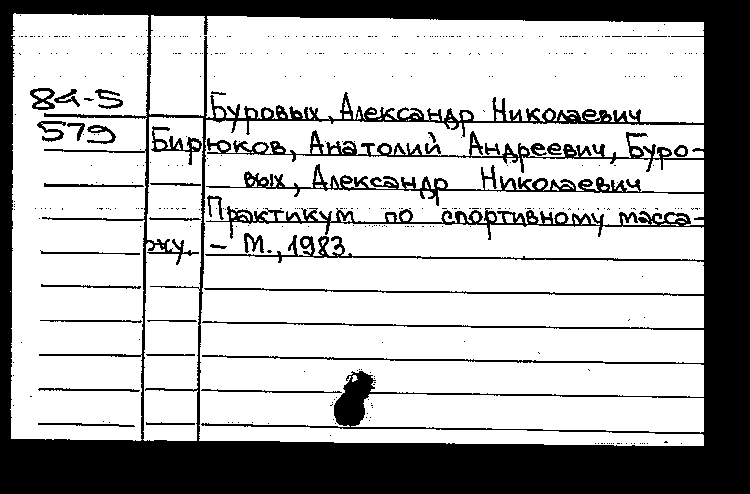 84-5
579
Буровых, Александр Николаевич
Бирюков, Анатолий Андреевич, Буро-
вых, Александр Николаевич
Практикум по спортивному масса-
жу. – М., 1983.